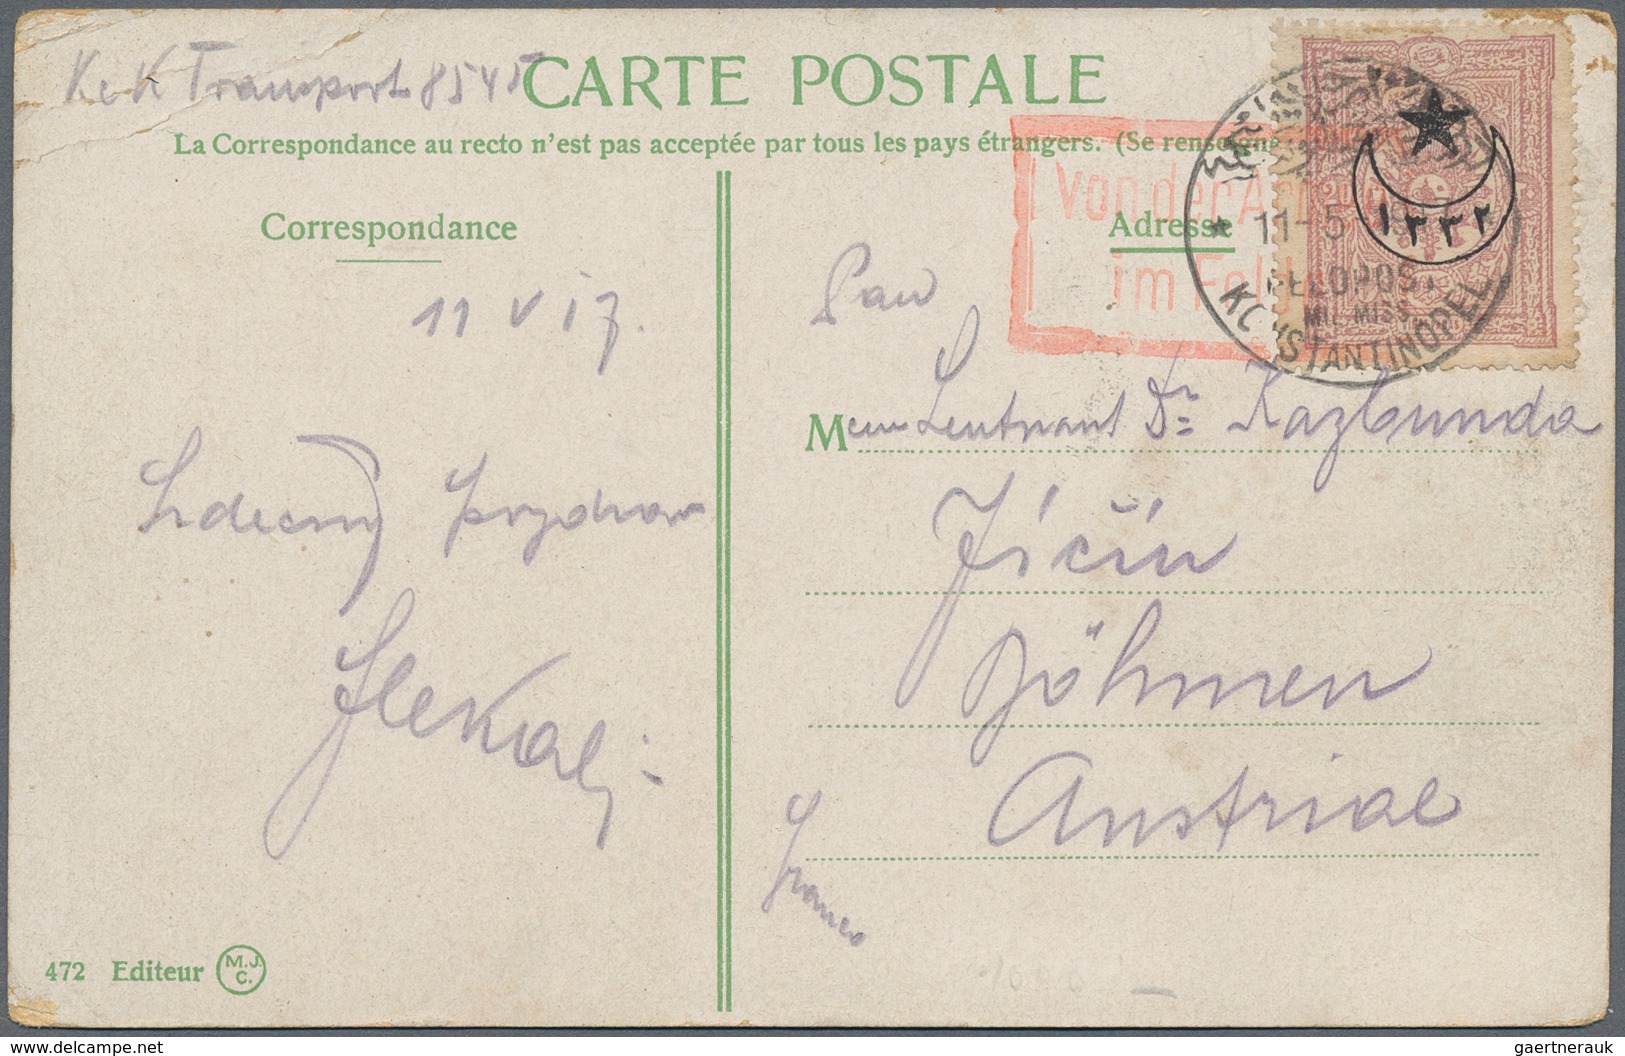 K u K Transport 8545
CARTE POSTALE
La Correspondance au recto n'est pas acceptée par tous les pays étrangers. (Se renseigne
Correspondance
Adresse
von der Ar
im Feld
11-5
١٣٣٢
FELDPOST
MIL. MISS.
KONSTANTINOPEL
11 V 17.
Pan
Mein Leutnant Dr Kazbunda
Jičín
Böhmen
Austriae
Srdečný pozdrav
Franco
472 Editeur M.J.C.
delcampe.net
gaertnerauk